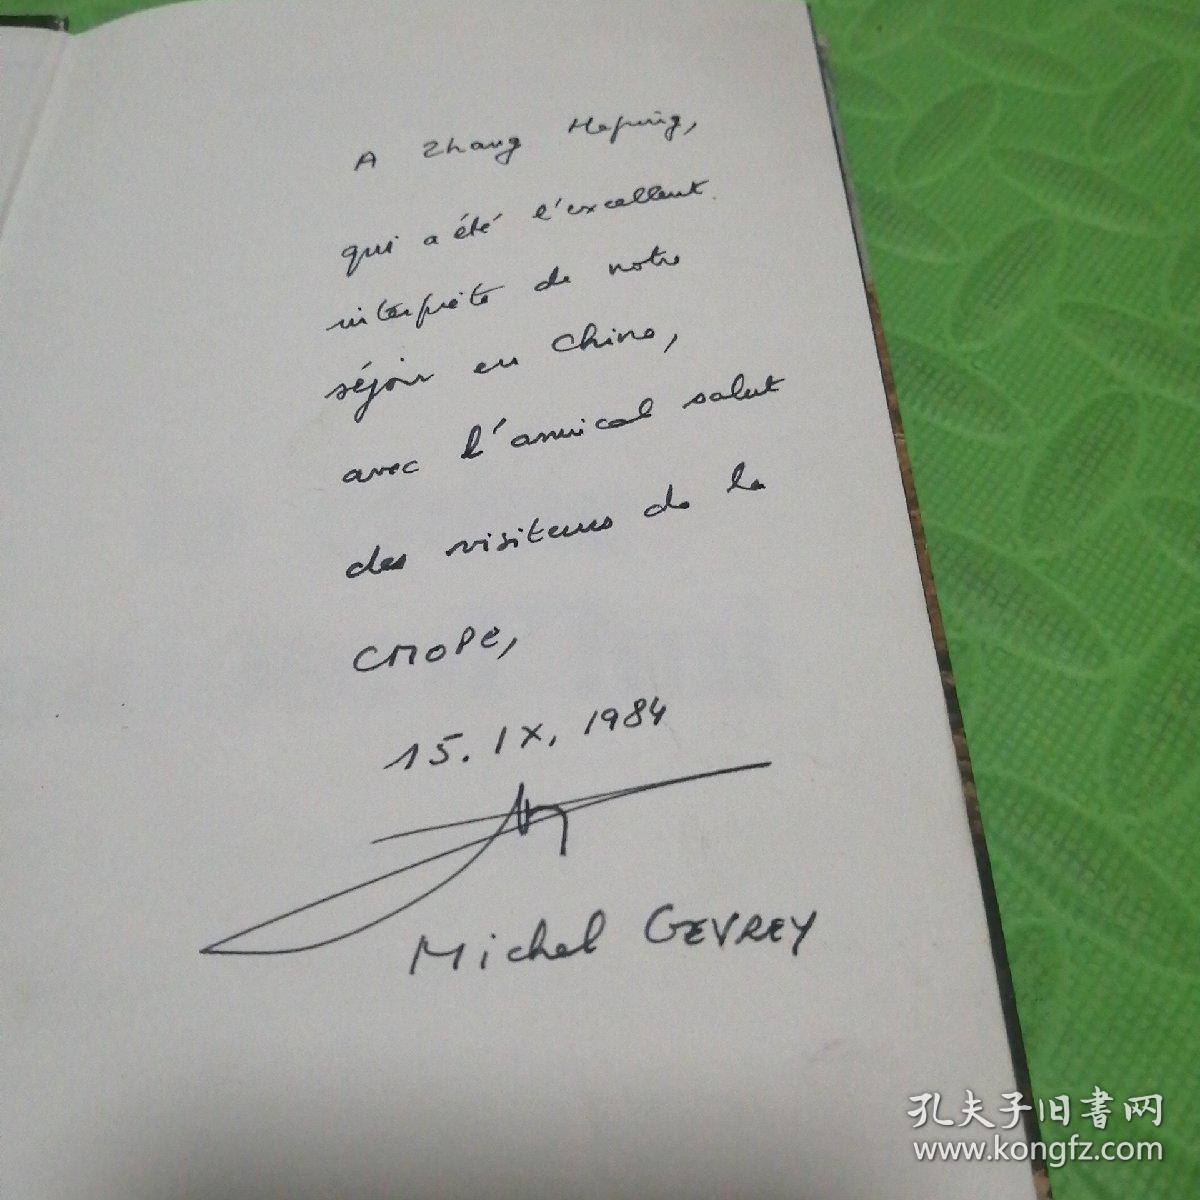 A Zhang Heping,
qui a été l'excellent
interprète de notre
séjour en Chine,
avec l'amical salut
des visiteurs de la
CMOPE,
15. IX, 1984
Michel GEVREY
孔夫子旧書网
www.kongfz.com